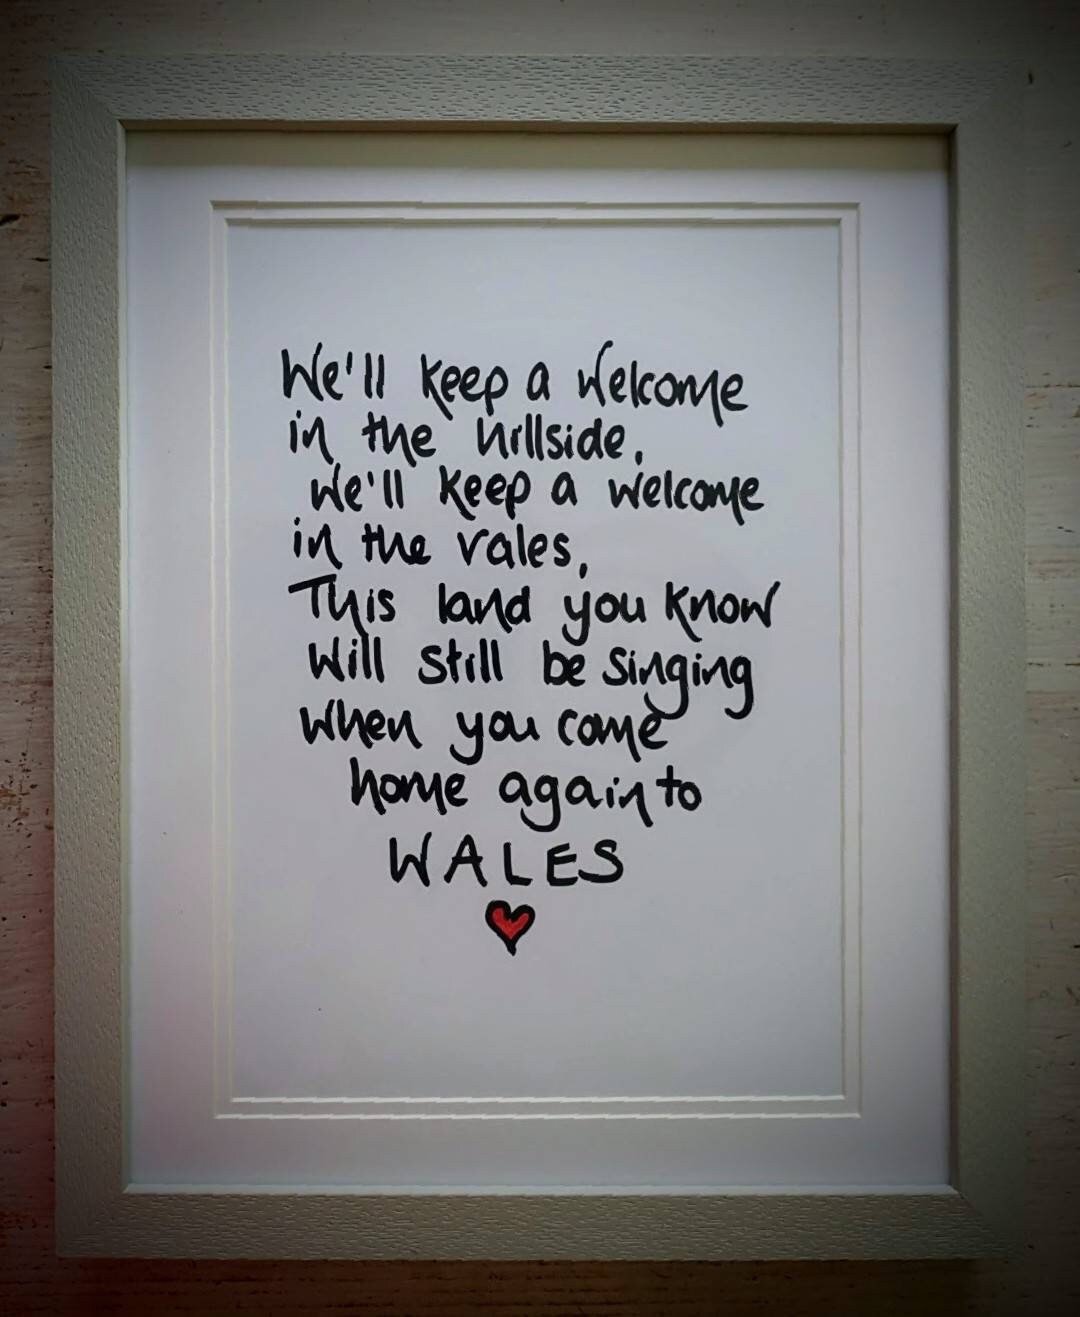 We'll keep a welcome
in the hillside,
We'll keep a welcome
in the vales,
This land you know
Will still be singing
When you come
home again to
WALES